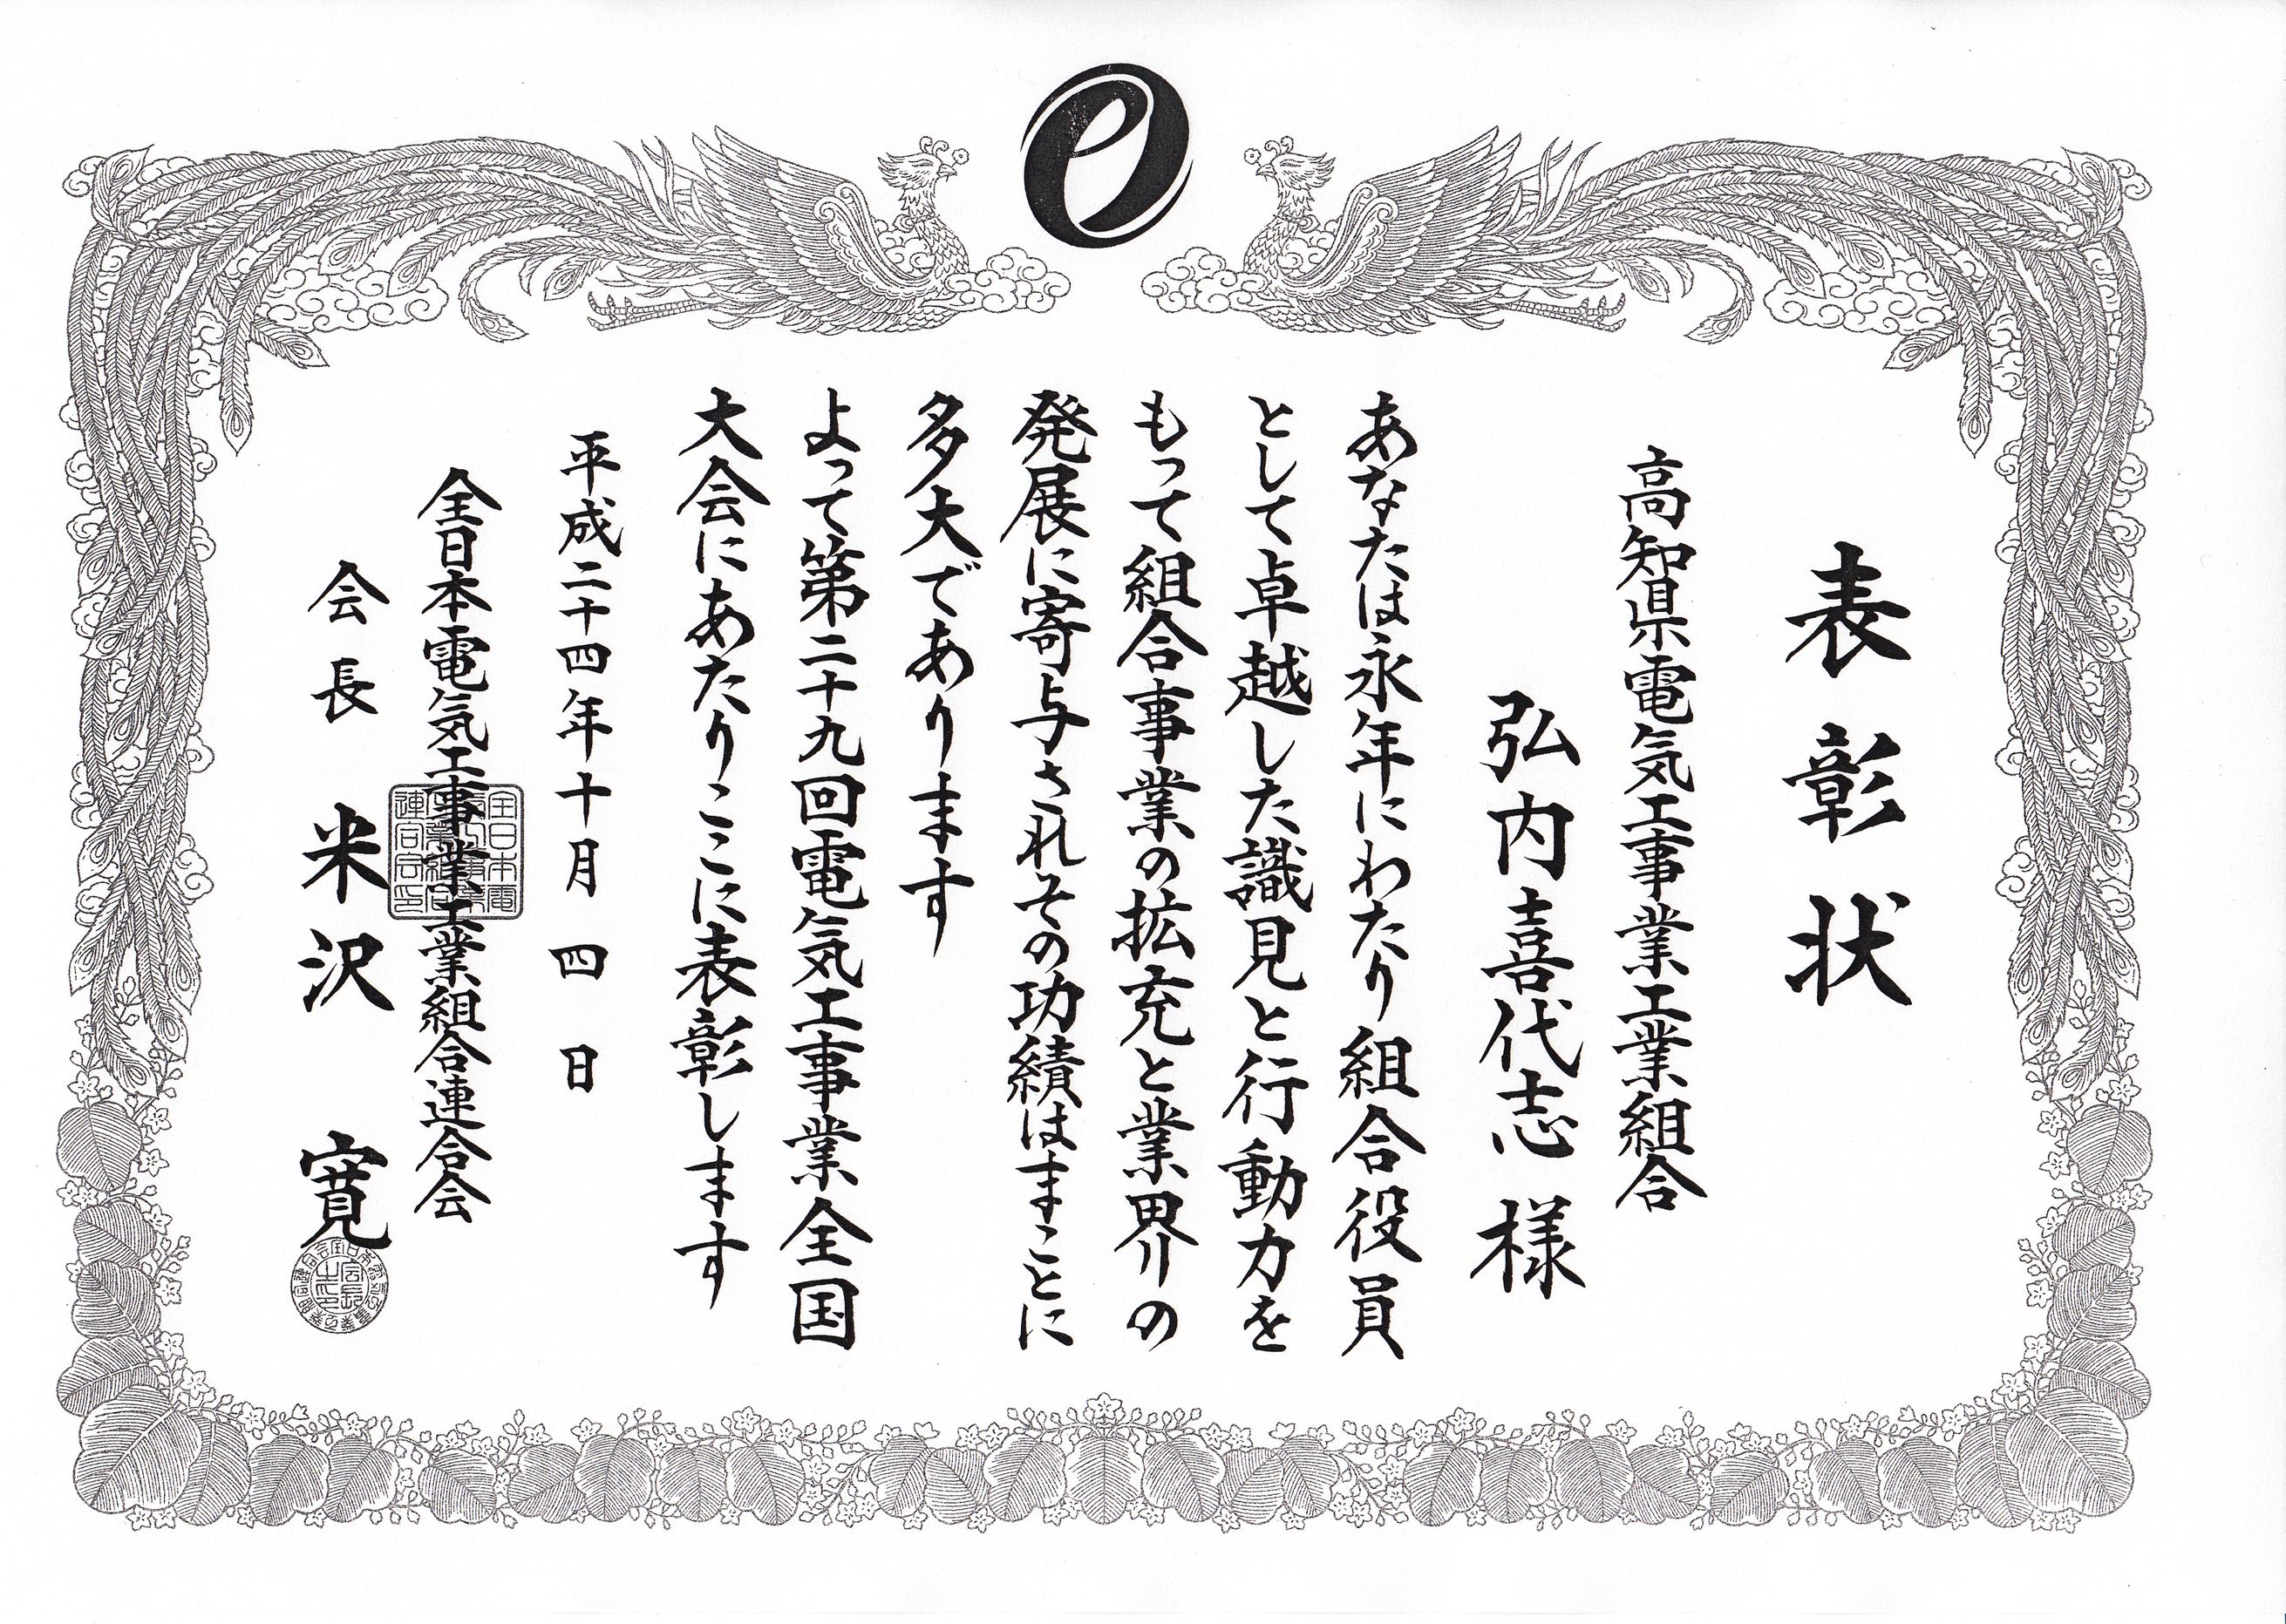 表彰状
高知県電気工事業工業組合
弘内喜代志 様
あなたは永年にわたり組合役員
として卓越した識見と行動力を
もって組合事業の拡充と業界の
発展に寄与されその功績はまことに
多大であります
よって第二十九回電気工事業全国
大会にあたりここに表彰します
平成二十四年十月四日
全日本電気工事業工業組合連合会
会長 米沢 寛